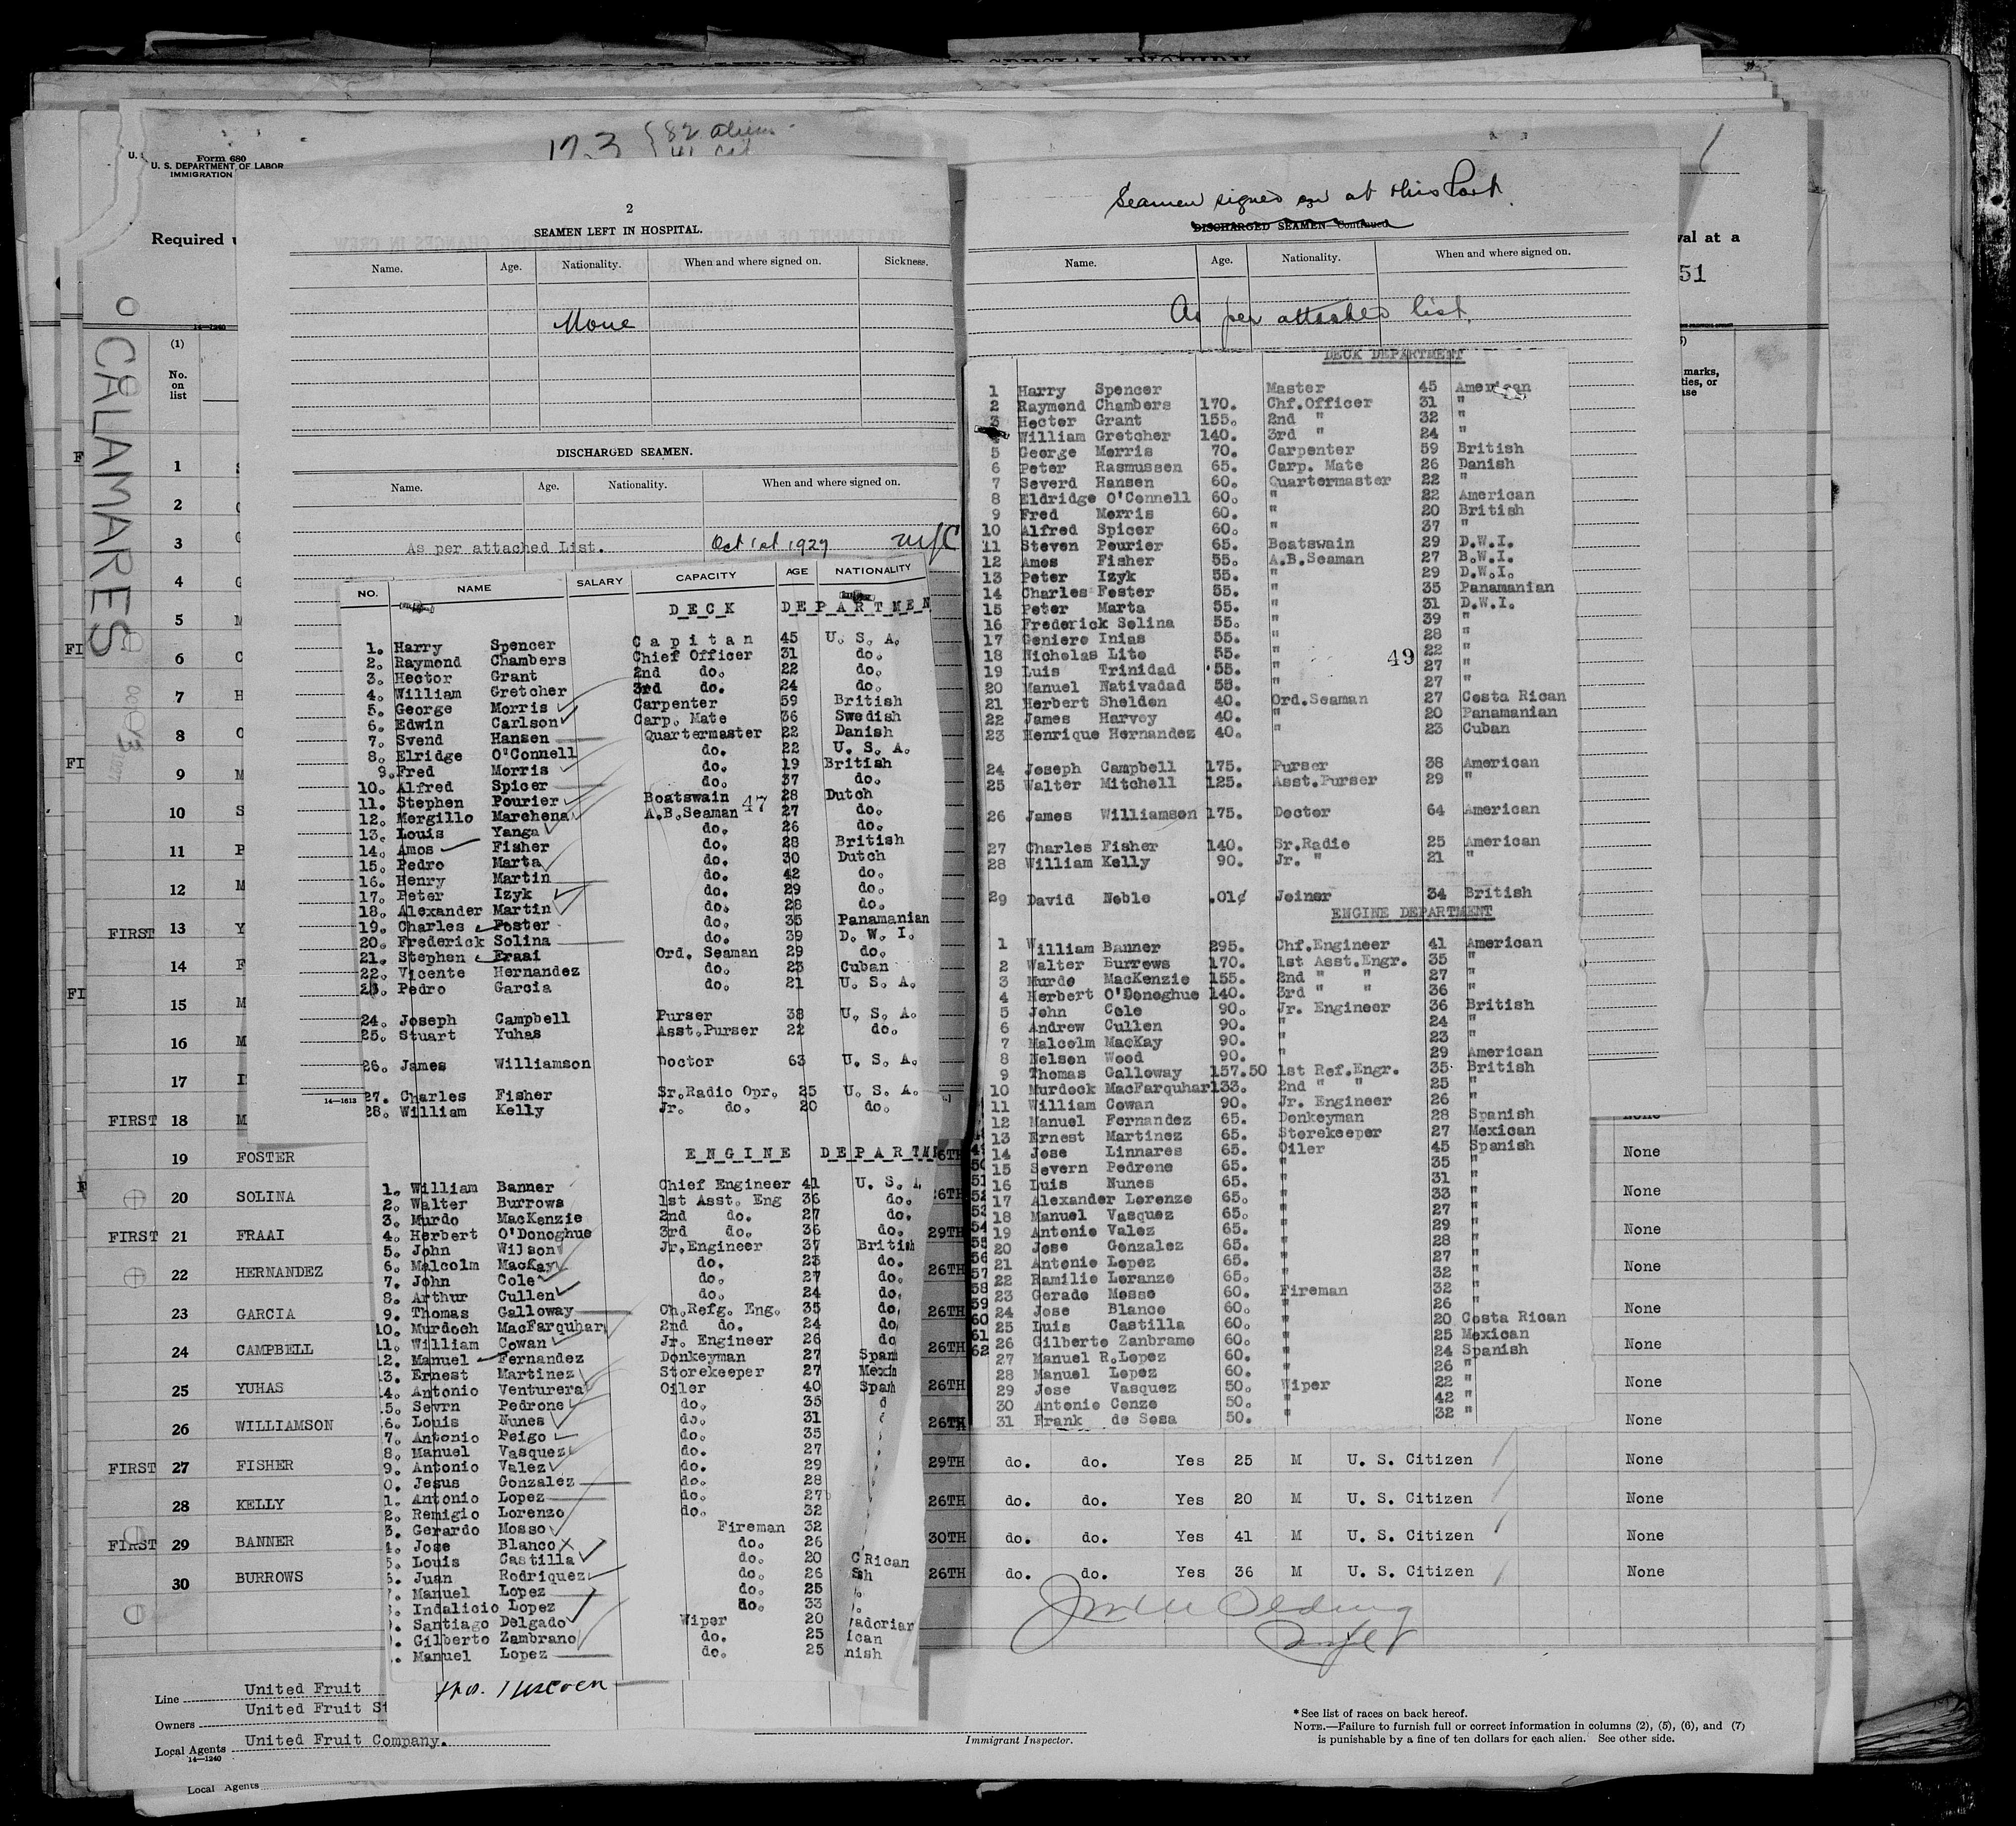 123 {82 alien
Form 680
U. S. DEPARTMENT OF LABOR
IMMIGRATION
Required
CALAMARES
2
SEAMEN LEFT IN HOSPITAL.
Name. Age. Nationality. When and where signed on. Sickness.
None
DISCHARGED SEAMEN.
Name. Age. Nationality. When and where signed on.
As per attached List. Oct 1st 1927
NO. NAME SALARY CAPACITY AGE NATIONALITY
DECK DEPARTMEN
1. Harry Spencer Capitan 45 U. S. A.
2. Raymond Chambers Chief Officer 31 do.
3. Hector Grant 2nd do. 22 do.
4. William Gretcher 3rd do. 24 do.
5. George Morris Carpenter 59 British
6. Edwin Carlson Carp. Mate 36 Swedish
7. Svend Hansen Quartermaster 22 Danish
8. Elridge O'Connell do. 22 U. S. A.
9. Fred Morris do. 19 British
10. Alfred Spicer do. 37 do.
11. Stephen Pourier Boatswain 47 28 Dutch
12. Mergillo Marchena A.B.Seaman 27 do.
13. Louis Yanga do. 26 do.
14. Amos Fisher do. 28 British
15. Pedro Marta do. 30 Dutch
16. Henry Martin do. 42 do.
17. Peter Izyk do. 29 do.
18. Alexander Martin do. 28 do.
19. Charles Foster do. 35 Panamanian
20. Frederick Solina do. 39 D. W. I.
21. Stephen Fraai Ord. Seaman 29 do.
22. Vicente Hernandez do. 23 Cuban
23. Pedro Garcia do. 21 U. S. A.
24. Joseph Campbell Purser 38 U. S. A.
25. Stuart Yuhas Asst.Purser 22 do.
26. James Williamson Doctor 63 U. S. A.
27. Charles Fisher Sr.Radio Opr. 25 U. S. A.
28. William Kelly Jr. do. 20 do.
14—1613
ENGINE DEPARTM
1. William Banner Chief Engineer 41 U. S. A
2. Walter Burrows 1st Asst. Eng 36 do.
3. Murdo MacKenzie 2nd do. 27 do.
4. Herbert O'Donoghue 3rd do. 36 do.
5. John Wilson Jr.Engineer 37 British
6. Malcolm MacKay do. 23 do.
7. John Cole do. 27 do.
8. Arthur Cullen do. 24 do.
9. Thomas Galloway Ch.Refg. Eng. 35 do.
10. Murdoch MacFarquhar 2nd do. 24 do
11. William Cowan Jr. Engineer 26 do
12. Manuel Fernandez Donkeyman 27 Span
3. Ernest Martinez Storekeeper 27 Mexi
4. Antonio Venturera Oiler 40 Span
5. Sevrn Pedrone do. 35
6. Louis Nunes do. 31
7. Antonio Peigo do. 35
8. Manuel Vasquez do. 27
9. Antonio Valez do. 29
0. Jesus Gonzalez do. 28
1. Antonio Lopez do. 27
2. Remigio Lorenzo do. 32
3. Gerardo Mosso Fireman 32
4. Jose Blanco do. 26
5. Louis Castilla do. 20 C Rican
Juan Rodriquez do. 26
Manuel Lopez do. 25
Indalicio Lopez do. 33
Santiago Delgado Wiper 20 vadorian
Gilberto Zambrano do. 25 ican
Manuel Lopez do. 25 nish
Seamen signed on at this Port.
DISCHARGED SEAMEN—Continued.
Name. Age. Nationality. When and where signed on.
As per attached list.
DECK DEPARTMENT
1 Harry Spencer Master 45 American
2 Raymond Chambers 170. Chf.Officer 31 "
3 Hector Grant 155. 2nd " 32 "
William Gretcher 140. 3rd " 24 "
5 George Morris 70. Carpenter 59 British
6 Peter Rasmussen 65. Carp. Mate 26 Danish
7 Severd Hansen 60. Quartermaster 22 "
8 Eldridge O'Connell 60. " 22 American
9 Fred Morris 60. " 20 British
10 Alfred Spicer 60. " 37 "
11 Steven Pourier 65. Boatswain 29 D.W.I.
12 Amos Fisher 55. A.B.Seaman 27 B.W.I.
13 Peter Izyk 55. " 29 D.W.I.
14 Charles Foster 55. " 35 Panamanian
15 Peter Marta 55. " 31 D.W.I.
16 Frederick Solina 55. " 39 "
17 Geniero Inias 55. " 28 "
18 Nicholas Lito 55. " 49 22 "
19 Luis Trinidad 55. " 27 "
20 Manuel Nativadad 55. " 27 "
21 Herbert Sheldon 40. Ord.Seaman 27 Costa Rican
22 James Harvey 40. " 20 Panamanian
23 Henrique Hernandez 40. " 23 Cuban
24 Joseph Campbell 175. Purser 38 American
25 Walter Mitchell 125. Asst.Purser 29 "
26 James Williamson 175. Doctor 64 American
27 Charles Fisher 140. Sr.Radio 25 American
28 William Kelly 90. Jr. " 21 "
29 David Noble .01¢ Joiner 34 British
ENGINE DEPARTMENT
1 William Banner 295. Chf.Engineer 41 American
2 Walter Burrows 170. 1st Asst.Engr. 35 "
3 Murdo MacKenzie 155. 2nd " " 27 "
4 Herbert O'Donoghue 140. 3rd " " 36 "
5 John Cole 90. Jr. Engineer 36 British
6 Andrew Cullen 90. " 24 "
7 Malcolm MacKay 90. " 23 "
8 Nelson Wood 90. " 29 American
9 Thomas Galloway 157.50 1st Ref.Engr. 35 British
10 Murdock MacFarquhar 133. 2nd " " 25 "
11 William Cowan 90. Jr. Engineer 26 "
12 Manuel Fernandez 65. Donkeyman 28 Spanish
13 Ernest Martinez 65. Storekeeper 27 Mexican
14 Jose Linnares 65. Oiler 45 Spanish
15 Severn Pedrone 65. " 35 "
16 Luis Nunes 65. " 31 "
17 Alexander Lorenzo 65. " 33 "
18 Manuel Vasquez 65. " 27 "
19 Antonio Valez 65. " 29 "
20 Jose Gonzalez 65. " 28 "
21 Antonio Lopez 65. " 27 "
22 Ramilio Loranzo 65. " 32 "
23 Gerado Mosso 60. Fireman 32 "
24 Jose Blanco 60. " 26 "
25 Luis Castilla 60. " 20 Costa Rican
26 Gilberto Zanbramo 60. " 25 Mexican
27 Manuel R.Lopez 60. " 24 Spanish
28 Manuel Lopez 60. " 26 "
29 Jose Vasquez 50. Wiper 22 "
30 Antonio Conzo 50. " 42 "
31 Frank de Sosa 50. " 32 "
val at a
51
marks,
ties, or
14—1240
(1)
No.
on
list
1
2
3
4
5
6
7
8
9
10
11
12
FIRST 13 Y
14
15 M
16 M
17
FIRST 18 M
19 FOSTER None
20 SOLINA 26TH None
FIRST 21 FRAAI 29TH None
22 HERNANDEZ 26TH None
23 GARCIA 26TH None
24 CAMPBELL 26TH None
25 YUHAS 26TH None
26 WILLIAMSON 26TH None
FIRST 27 FISHER 29TH do. do. Yes 25 M U. S. Citizen None
28 KELLY 26TH do. do. Yes 20 M U. S. Citizen None
FIRST 29 BANNER 30TH do. do. Yes 41 M U. S. Citizen None
30 BURROWS 26TH do. do. Yes 36 M U. S. Citizen None
Line United Fruit
Owners United Fruit St
Local Agents United Fruit Company.
14—1240
Local Agents
Immigrant Inspector.
* See list of races on back hereof.
NOTE.—Failure to furnish full or correct information in columns (2), (5), (6), and (7)
is punishable by a fine of ten dollars for each alien. See other side.